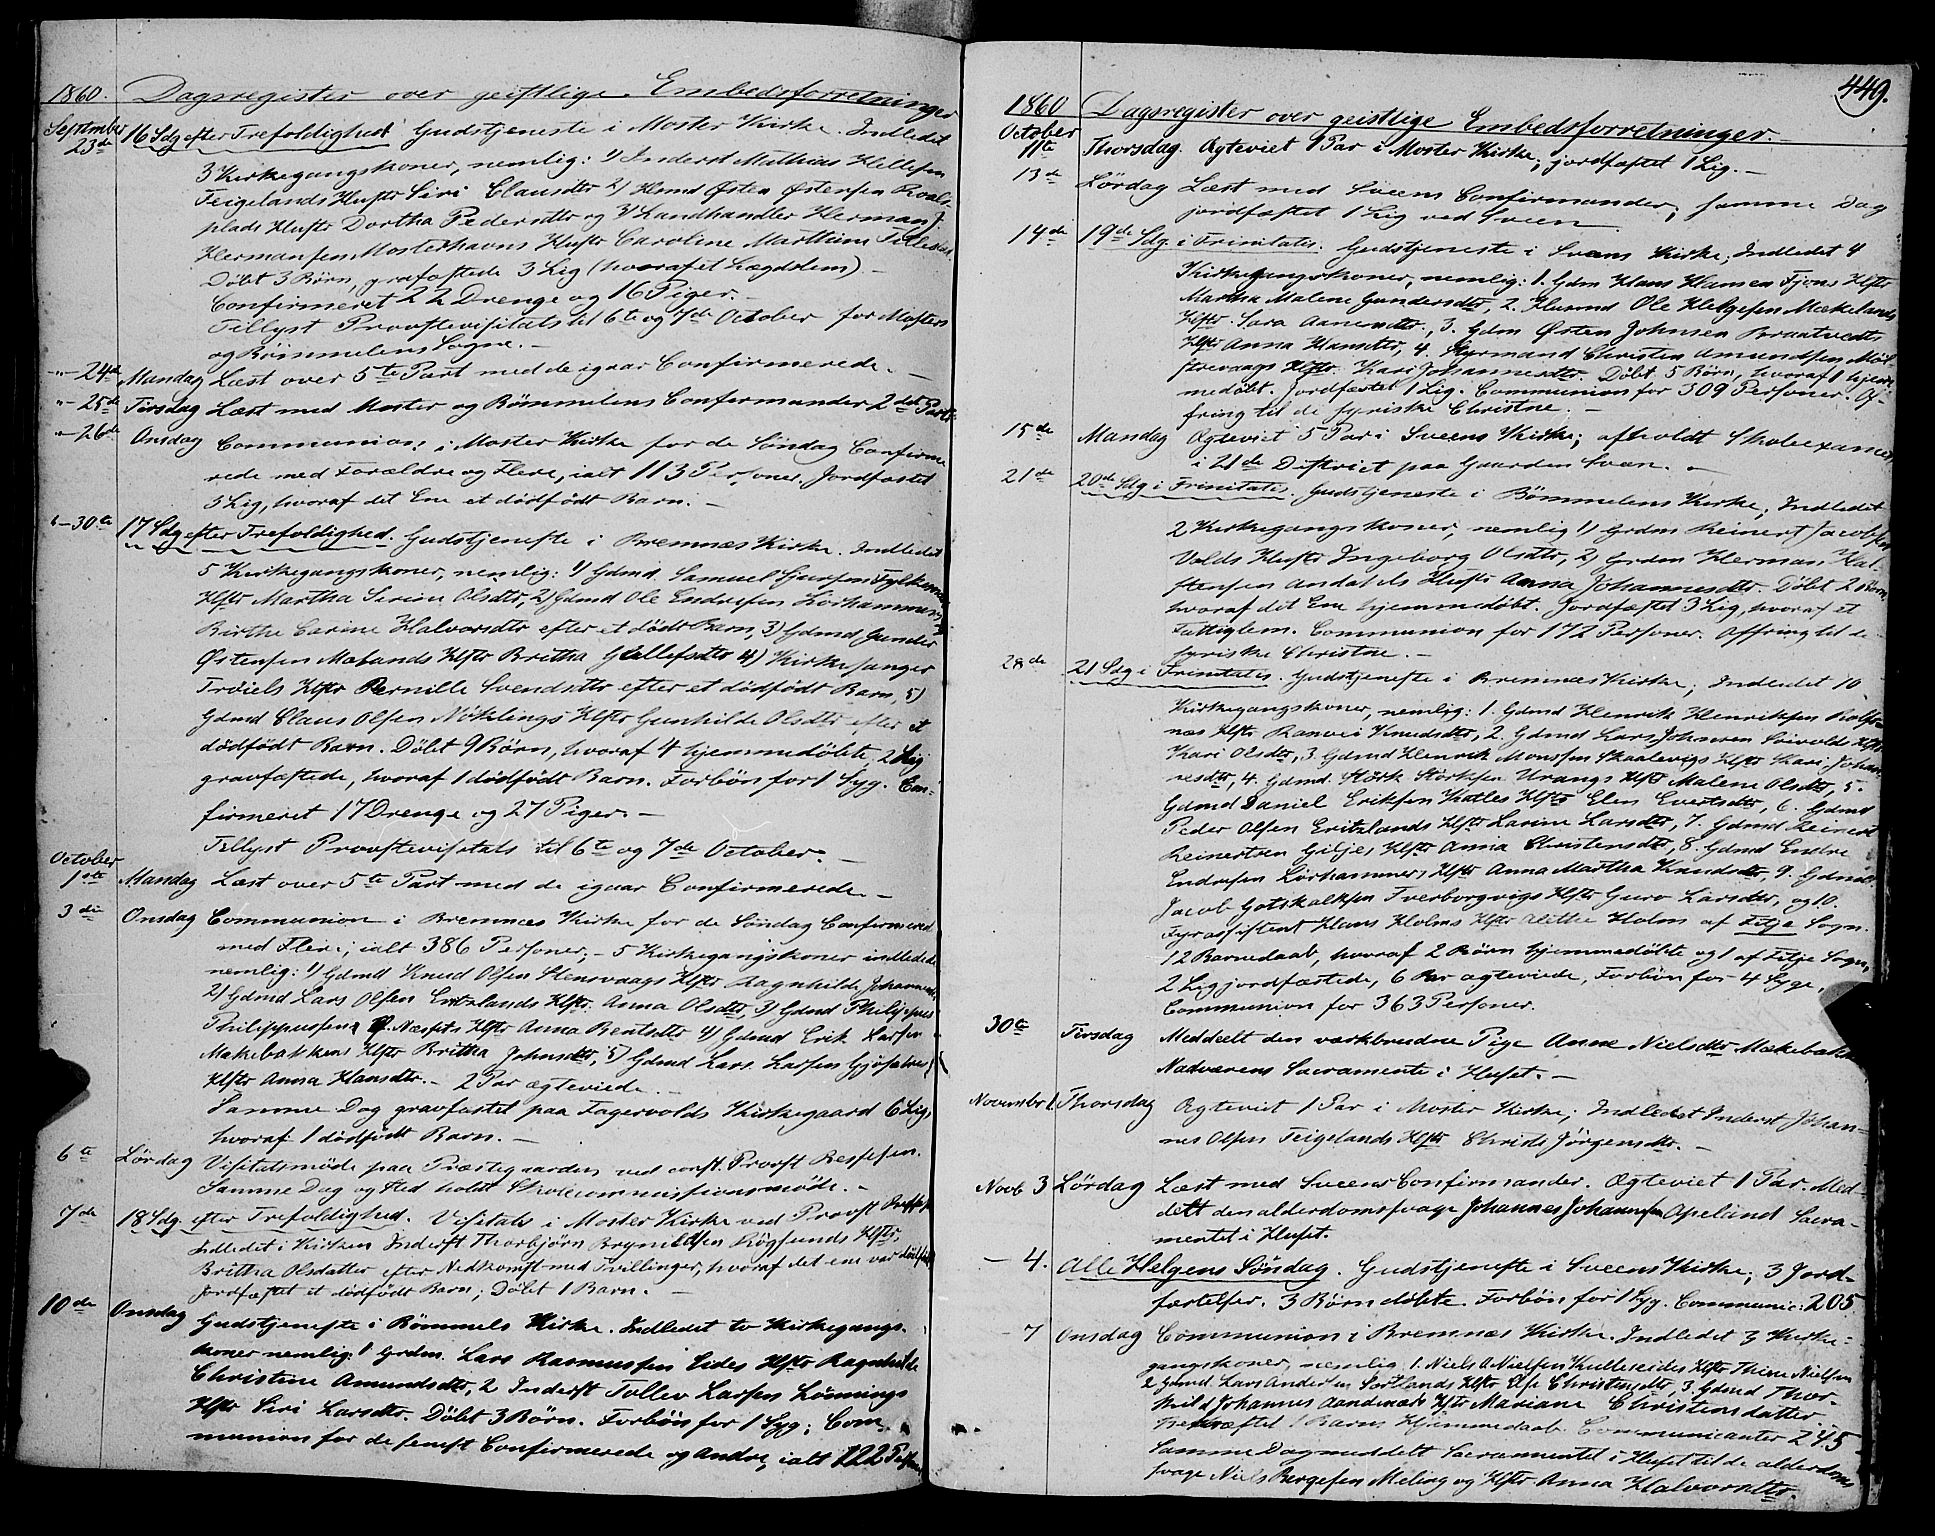 1860. Dagsregister over geistlige Embedsforretninger
September
23de 16 Sdg efter Trefoldighed Gudstjeneste i Moster Kirke. Indledet
3 Kirkegangskoner, nemlig: 1) Inderst Mathias Hellesen
Feigelands Hustr Siri Clausdtr 2) Hmd Østen Østensen Roals-
plads Hustr Dortha Pedersdtr og 3) Landhandler Herman J.
Hermansen Mosterhavns Hustr Caroline Marthine
Døbt 3 Børn, gravfæstede 3 Lig (hvoraf et Lægdslem) –
Confirmeret 22 Drenge og 16 Piger. –
Tillyst Provstevisitats til 6te og 7de October for Mosters
og Bømmelens Sogne. –
"– 24de Mandag Læst over 5te Part med de igaar Confirmerede. –
"– 25de Tirsdag Læst med Moster og Bømmelens Confirmander 2det Parti
"– 26de Onsdag Communion i Moster Kirke for de Søndag Confirme
rede med Forældre og Flere, ialt 113 Personer. Jordfæstet
3 Lig, hvoraf det Ene et dödfödt Barn. –
"– 30te 17 Sdg efter Trefoldighed. Gudstjeneste i Bremnæs Kirke. Indledet
5 Kirkegangskoner, nemlig: 1) Gdmd. Samuel Sjursen
Hstr Martha Serine Olsdtr, 2) Gdmd Ole Endresen Lörhammers
Birthe Carine Halvorsdtr efter et dödt Barn, 3) Gdmd Gunder
Østensen Mælands Hstr Britha Gullefsdtr 4) Kirkesanger
Tröiels Hstr Pernille Svendsdtr efter et dödfödt Barn, 5)
Gdmd Claus Olsen Nöklings Hstr Gunhilde Olsdtr efter et
dödfödt Barn. Döbt 9 Börn, hvoraf 4 hjemmedöbte, 2 Lig
gravfæstede, hvoraf 1 dödfödt Barn. Forbön for 1 Syg. Con-
firmeret 17 Drenge og 27 Piger. –
Tillyst Provstevisitats til 6te og 7de October. –
October
1ste Mandag Læst over 5te Part med de igaar Confirmerede –
3die Onsdag Communion i Bremnæs Kirke for de Søndag Confirmerede
med Flere; ialt 386 Personer; – 5 Kirkegangskoner indledede
nemlig: 1) Gdmd Knud Olsen Stensvaags Hstr Ragnhilde Johannesdtr
2) Gdmd Lars Olsen Eritzlands Hstr. Anna Olsdtr, 3) Gdmd Philippus
Philippussen Næsets Hstr Anna Bentsdtr 4) Gdmd Erik Larsen
Mækebakkens Hstr Britha Johnsdtr, 5) Gdmd Lars Larsen
Hstr Anna Hansdtr. – 2 Par ægteviede –
Samme Dag gravfæstet paa Fagervolds Kirkegaard 6 Lig,
hvoraf 1 dödfödt Barn. –
6te Lördag Visitatsmöde paa Præstegaarden ved const. Provst
Samme Dag og Sted holdt Skolecommissionsmöde. –
7de 18 Sdg. efter Trefoldighed. Visitats i Moster Kirke ved Provst
Indledet i Kirken Inderst Thorbjörn Brynildsen Rögsunds Hstr,
Britha Olsdatter efter Nedkomst med Tvillinger, hvoraf det ene var dödfödt
Jordfæstet et dödfödt Barn; Döbt 1 Barn. –
10de Onsdag Gudstjeneste i Bömmels Kirke. Indledet to Kirkegangs-
koner nemlig: 1 Grdm. Lars Rasmussen Eides Hstr Ragnhilde
Christine Amundsdtr, 2 Inderst Tollev Larsen Lönnings
Hstr Siri Larsdtr. Döbt 3 Börn. Forbön for 1 Syg; Com-
munion for de senest Confirmerede og Andre, ialt 122 Personer
449.
1860 Dagsregister over geistlige Embedsforretninger.
October
11te Thorsdag. Ægteviet 1 Par i Moster Kirke; jordfæstet 1 Lig. –
13de Lördag Læst med Sveens Confirmander, samme Dag
jordfæstet 1 Lig ved Sveen
14de 19de Sdg. i Trinitatis. Gudstjeneste i Sveens Kirke; Indledet 4
Kirkegangskoner, nemlig: 1. Gdm Hans Hansen Fjones Hstr
Martha Malene Gundersdtr, 2. Husmd Ole Helgesen Mækelands
Hstr Sara Aanensdtr, 3. Gdm Østen Johnsen Braatvedts
Hstr Anna Hansdtr, 4. Styrmand Christen Amundsen Möl-
strevaags Hstr. Kari Johannesdtr. Döbt 5 Börn, hvoraf 1 hjem-
medöbt. Jordfæstet 1 Lig. Communion for 309 Personer. Of-
fring til de syriske Christne. –
15de Mandag Ægteviet 5 Par i Sveens Kirke; afholdt Skoleexamen
i 21de District paa Gaarden Sveen. –
21de 20de Sdg i Trinitatis. Gudstjeneste i Bömmelens Kirke; Indledet
2 Kirkegangskoner, nemlig 1) Grdm Reinert Jacobsen
Volds Hustr Ingeborg Olsdtr, 2) Grdm Herman Hal-
stensen Andals Hustr Anna Johannesdtr. Döbt 2 Börn,
hvoraf det Ene hjemmedöbt. Jordfæstet 3 Lig, hvoraf et
Fattiglem. Communion for 172 Personer. Offring til de
syriske Christne. –
28de 21 Sdg i Trinitatis. Gudstjeneste i Bremnæs Kirke; Indledet 10
Kirkegangskoner, nemlig: 1. Gdmd Henrik Henriksen Rolfs-
næs Hstr Ranvei Knudsdtr, 2 Gdmd Lars Johnsen Seivolds Hstr
Kari Olsdtr, 3. Gdmd Henrik Monsen Skaalevigs Hstr Kari Johan-
nesdtr, 4. Gdmd. Störk Störksen Urangs Hstr Malene Olsdtr, 5.
Gdmd Daniel Eriksen Katles Hstr Elen Evertsdtr, 6. Gdmd
Peder Olsen Eritzlands Hstr Larine Larsdtr, 7. Gdmd Reinert
Reinertsen Giljes Hstr Anna Christensdtr, 8. Gdmd Endre
Endresen Lörhammers Hstr Anna Martha Knudsdtr, 9. Gdmd
Jacob Gotskalksen Tverborgvigs Hstr Guro Larsdtr, og 10.
Fyrassistent Hans Holms Hstr Alithe Holm af Fitje Sogn.
12 Barnedaab, hvoraf 2 Börn hjemmedöbte og 1 af Fitje Sogn,
2 Lig jordfæstede, 6 Par ægteviede, Forbön for 4 Syge,
Communion for 363 Personer.
30te Tirsdag Meddeelt den værkbrudne Pige Anne Nielsdtr Mækebakke
Nadverens Sacramente i Huset. –
November 1 Thorsdag Ægteviet 1 Par i Moster Kirke; Indledet Inderst Johan-
nes Olsen Feigelands Hstr Christi Jörgensdtr. –
Novb 3 Lördag Læst med Sveens Confirmander. Ægteviet 1 Par. Med-
delt den alderdomssvage Johannes Johannesen Apeland Sacra-
mentet i Huset.
– 4. Alle Helgens Söndag. Gudstjeneste i Sveens Kirke; 3 Jord-
fæstelser. 3 Börn döbte. Forbön for 1 Syg. Communic: 205
– 7 Onsdag Communion i Bremnæs Kirke. Indledet 3 Kirke-
gangskoner, nemlig 1. Niels A Nielsen Kulleseides Hstr Thine Nielsen
2 Gdmd Lars Andersen Sortlands Hstr Else Christensdtr, 3. Gdmd Thor-
kild Johannes Aandenæs Hstr Mariane Christensdatter
Bekræftet 1 Barns Hjemmedaab Communicanter 245.
Samme Dag meddelt Sacramentet i Huset til de alderdoms
svage Niels Bergesen Meling og Hstr Anna Halvorsdtr.